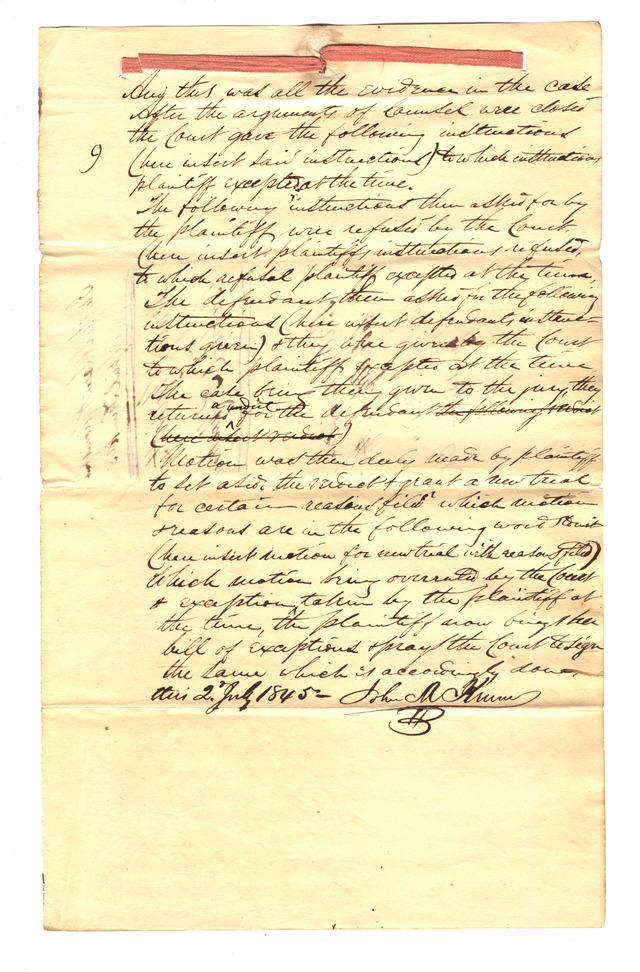 And this was all the evidence in the case
After the arguments of Counsel were closed
the Court gave the following instructions
9
(here insert said instructions) to which instructions
plaintiff excepted at the time.
The following instructions then asked for by
the plaintiff were refused by the Court.
(here insert plaintiffs instructions refused,
to which refusal plaintiff excepted at the time.
The defendant then asked for the following
instructions (here insert defendants instruc-
tions given) & they were given by the Court
to which plaintiff excepted at the time
The case being then given to the jury, they
returned a verdict for the defendant the following verdict
(here insert verdict)
Motion was then duly made by plaintiff
to set aside the verdict & grant a new trial
for certain reasons filed which motion
& reasons are in the following words towit
(here insert motion for new trial with reasons filed)
Which motion being overruled by the Court
& exception taken by the plaintiff at
the time, the plaintiff now brings her
bill of exceptions & prays the Court to sign
the same which is accordingly done,
this 2d July 1845— John M Krum